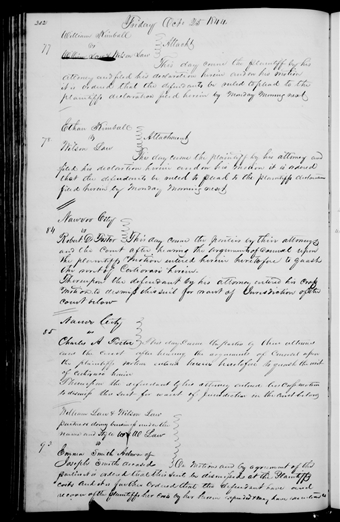 302
Friday Oct. 25 1844
William Kimball
77 vs Attacht
Wilson Law
This day came the plaintiff by his
attorney and filed his declaration herein and on his motion
it is ordered that the defendants be ruled to plead to the
plaintiffs declaration filed herein by Monday Morning next
Ethan Kimball
78 vs Attachment
Wilson Law
This day came the plaintiff by his attorney and
filed his declaration herein and on his motion it is ordered
that the defendants be ruled to plead to the plaintiffs declaration
filed herein by Monday Morning next
Nauvoo City
84 vs
Robert D. Foster This day came the parties by their attorneys
and the Court after hearing the arguments of Counsel upon
the plaintiffs motion entered herein heretofore to quash
the writ of Certiorari herein
Thereupon the defendant by his attorney entered his cross
motion to dismiss this suit for want of Jurisdiction of the
court below
Nauvoo City
85 vs
Charles A. Foster This day came the parties by their attorneys
and the Court after hearing the arguments of Counsel upon
the plaintiffs motion entered herein heretofore to quash the writ
of certiorari herein
Thereupon the defendant by his attorney entered his cross motion
to dismiss this suit for want of jurisdiction in the Court below
William Law & Wilson Law
partners doing business under the
name and style of W & W Law
93 vs
Emma Smith Admx of
Joseph Smith deceased On Motion and by agreement of this
parties it ordered that this suit be dismissed at the Plaintiffs
costs and it is further ordered that the defendant have and
recover of the plaintiff his costs by him herein expended